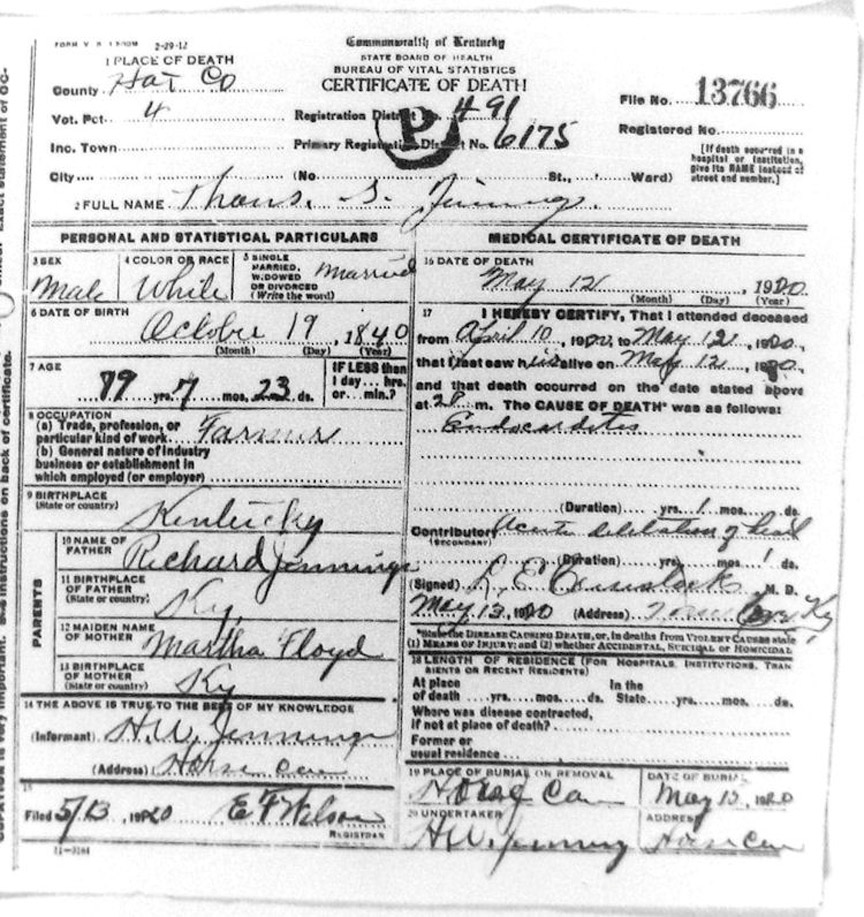 2-29-12
Commonwealth of Kentucky
STATE BOARD OF HEALTH
BUREAU OF VITAL STATISTICS
CERTIFICATE OF DEATH
1 PLACE OF DEATH
County Hat Co
Vot. Pct. 4
Inc. Town
City (No. St., Ward)
Registration District No. 491
Primary Registration District No. 6175
P
File No. 13766
Registered No.
[If death occurred in a
hospital or institution,
give its NAME instead of
street and number.]
2 FULL NAME Thons. S. Jennings.
PERSONAL AND STATISTICAL PARTICULARS
3 SEX
Male
4 COLOR OR RACE
White
5 SINGLE
MARRIED,
WIDOWED
OR DIVORCED
(Write the word)
Married
6 DATE OF BIRTH
October 19, 1840
(Month) (Day) (Year)
7 AGE
79 yrs. 7 mos. 23 ds.
IF LESS than
1 day... hrs.
or... min.?
8 OCCUPATION
(a) Trade, profession, or
particular kind of work Farmer
(b) General nature of industry
business or establishment in
which employed (or employer)
9 BIRTHPLACE
(State or country)
Kentucky
PARENTS
10 NAME OF
FATHER
Richard Jennings
11 BIRTHPLACE
OF FATHER
(State or country)
Ky
12 MAIDEN NAME
OF MOTHER
Martha Floyd
13 BIRTHPLACE
OF MOTHER
(State or country)
Ky
14 THE ABOVE IS TRUE TO THE BEST OF MY KNOWLEDGE
(Informant) H.W. Jennings
(Address) Horse Cave
15
Filed 5/13, 1920 E F Wilson
REGISTRAR
11-3184
MEDICAL CERTIFICATE OF DEATH
16 DATE OF DEATH
May 12, 1920
(Month) (Day) (Year)
17 I HEREBY CERTIFY, That I attended deceased
from April 10, 1920, to May 12, 1920,
that I last saw him alive on May 12, 1920,
and that death occurred on the date stated above
at m. The CAUSE OF DEATH* was as follows:
Endocarditis
(Duration) yrs. 1 mos. ds.
Contributory Acute dilitation of heart
(SECONDARY)
(Duration) yrs. mos. 1 ds.
(Signed) L. E. M. D.
May 13, 1920 (Address) Ky
*State the DISEASE CAUSING DEATH, or, in deaths from VIOLENT CAUSES state
(1) MEANS OF INJURY; and (2) whether ACCIDENTAL, SUICIDAL or HOMICIDAL
18 LENGTH OF RESIDENCE (FOR HOSPITALS, INSTITUTIONS, TRAN
SIENTS OR RECENT RESIDENTS)
At place In the
of death yrs. mos. ds. State yrs. mos. ds.
Where was disease contracted,
if not at place of death?
Former or
usual residence
19 PLACE OF BURIAL OR REMOVAL
Horse Cave
DATE OF BURIAL
May 13, 1920
20 UNDERTAKER
H.W. Jennings
ADDRESS
Horse Cave